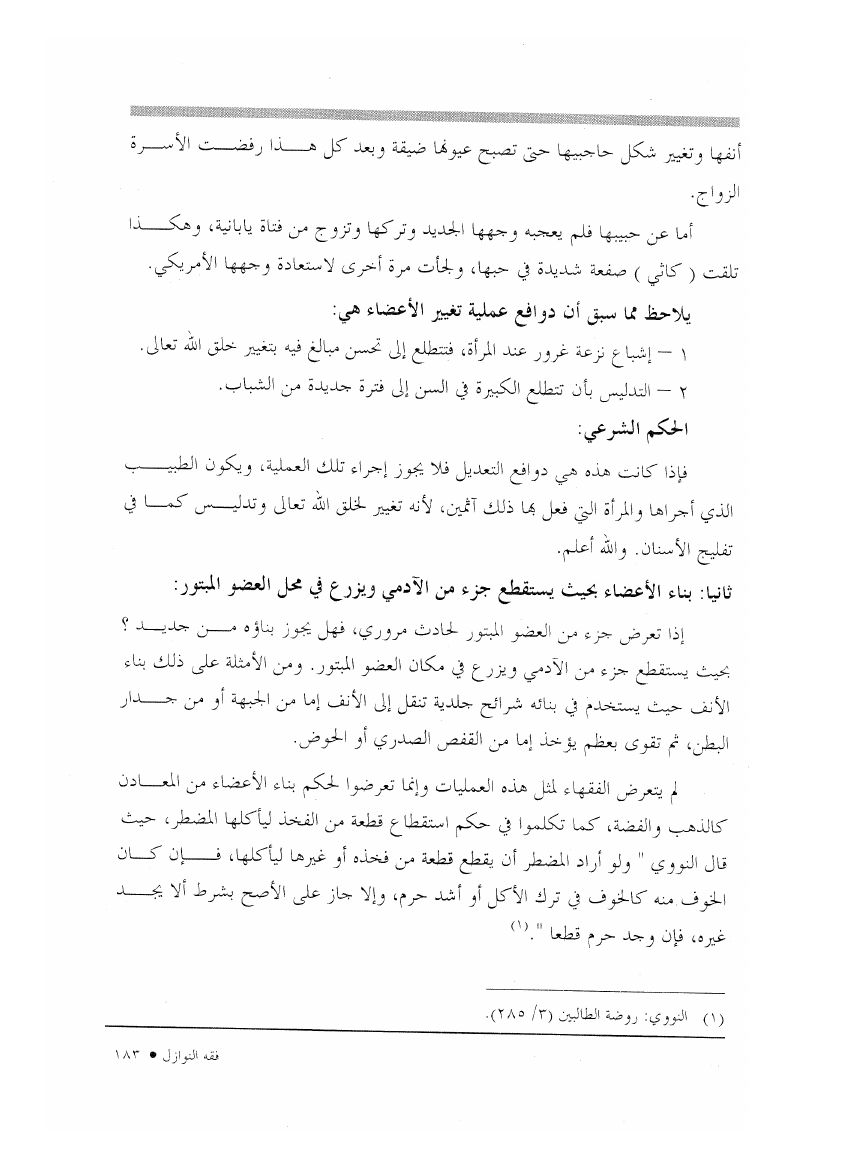 أنفها وتغيير شكل حاجبيها حتى تصبح عيونها ضيقة وبعد كل هـــذا رفضـــت الأســـرة
الزواج.
أما عن حبيبها فلم يعجبه وجهها الجديد وتركها وتزوج من فتاة يابانية، وهكـــذا
تلقت ( كاثي ) صفعة شديدة في حبها، ولجأت مرة أخرى لاستعادة وجهها الأمريكي.
يلاحظ مما سبق أن دوافع عملية تغيير الأعضاء هي:
١ – إشباع نزعة غرور عند المرأة، فتتطلع إلى تحسن مبالغ فيه بتغيير خلق الله تعالى.
٢ – التدليس بأن تتطلع الكبيرة في السن إلى فترة جديدة من الشباب.
الحكم الشرعي:
فإذا كانت هذه هي دوافع التعديل فلا يجوز إجراء تلك العملية، ويكون الطبيـــب
الذي أجراها والمرأة التي فعل بها ذلك آثمين، لأنه تغيير لخلق الله تعالى وتدليـــس كمـــا في
تفليج الأسنان. والله أعلم.
ثانيا: بناء الأعضاء بحيث يستقطع جزء من الآدمي ويزرع في محل العضو المبتور:
إذا تعرض جزء من العضو المبتور لحادث مروري، فهل يجوز بناؤه مـــن جديـــد ؟
بحيث يستقطع جزء من الآدمي ويزرع في مكان العضو المبتور. ومن الأمثلة على ذلك بناء
الأنف حيث يستخدم في بنائه شرائح جلدية تنقل إلى الأنف إما من الجبهة أو من جـــدار
البطن، ثم تقوى بعظم يؤخذ إما من القفص الصدري أو الحوض.
لم يتعرض الفقهاء لمثل هذه العمليات وإنما تعرضوا لحكم بناء الأعضاء من المعـــادن
كالذهب والفضة، كما تكلموا في حكم استقطاع قطعة من الفخذ ليأكلها المضطر، حيث
قال النووي " ولو أراد المضطر أن يقطع قطعة من فخذه أو غيرها ليأكلها، فـــإن كـــان
الخوف منه كالخوف في ترك الأكل أو أشد حرم، وإلا جاز على الأصح بشرط ألا يجـــد
غيره، فإن وجد حرم قطعا ".(١)
(١) النووي: روضة الطالبين (٣/ ٢٨٥).
فقه النوازل • ١٨٣